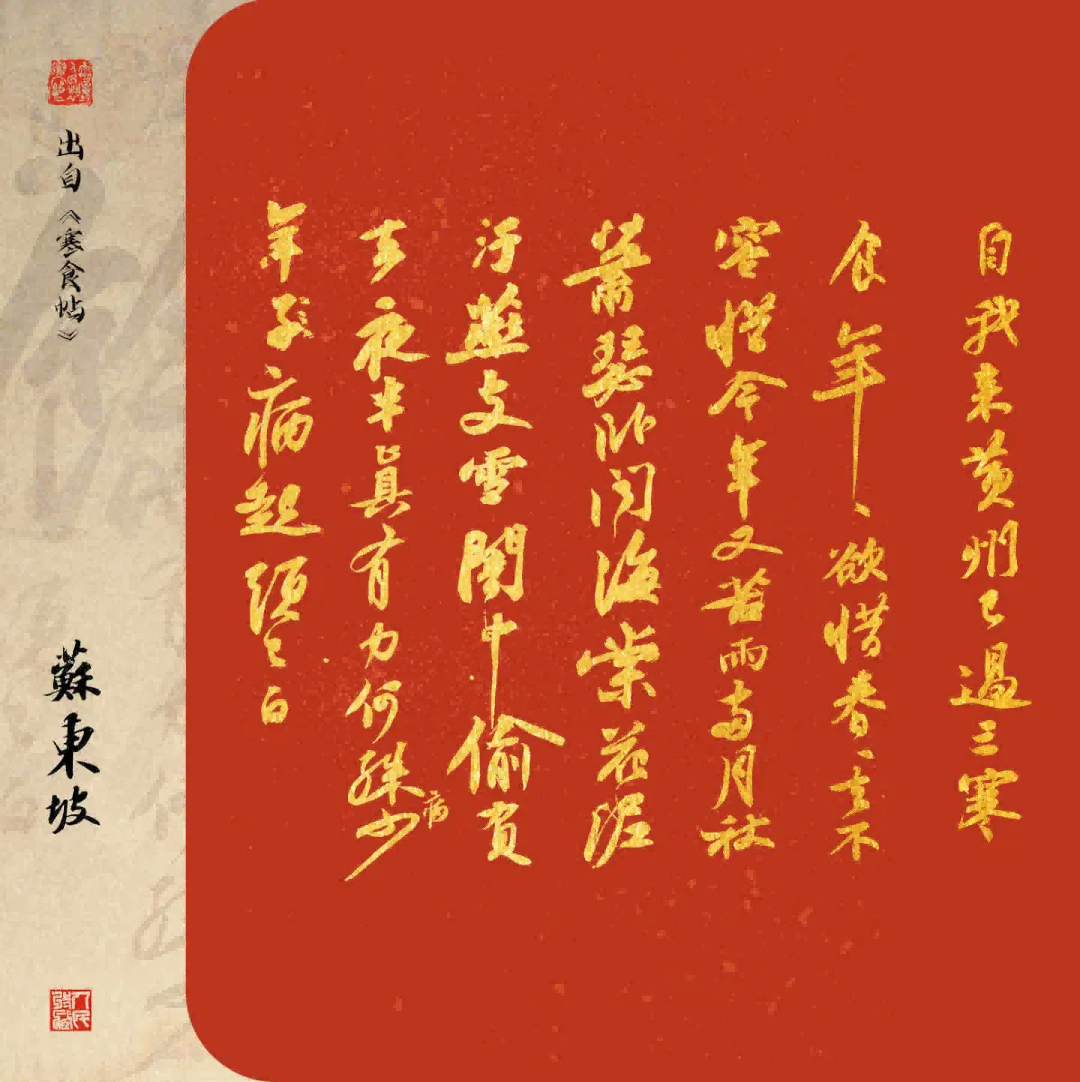 自我来黄州已過三寒
食年〻欲惜春〻去不
容惜今年又苦雨兩月秋
蕭瑟卧聞海棠花泥
汙燕支雪闇中偷負
去夜半真有力何殊少
病
年子病起頭已白
出自《寒食帖》
蘇東坡